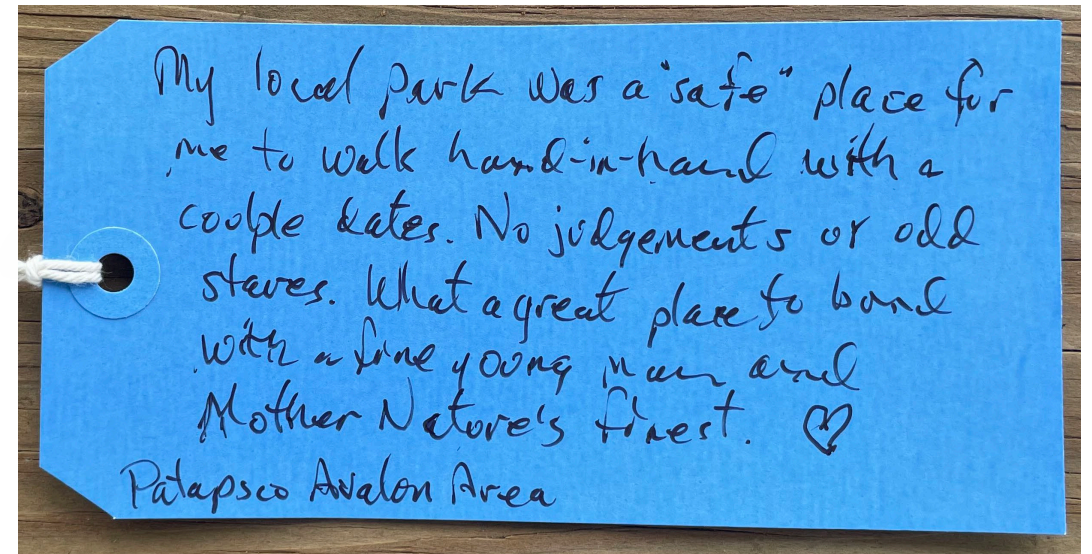 My local park was a "safe" place for
me to walk hand-in-hand with a
couple dates. No judgements or odd
stares. What a great place to bond
with a fine young man and
Mother Nature's finest. ♡
Patapsco Avalon Area